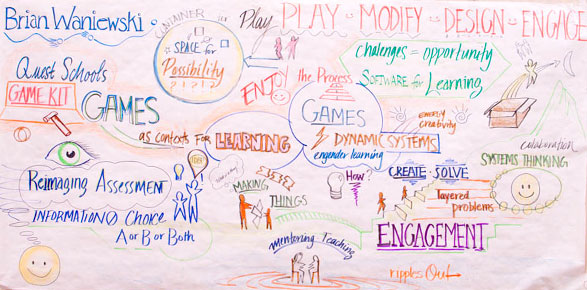 Brian Waniewski
CONTAINER
or
SPACE for
Possibility
????
Play
PLAY - MODIFY - DESIGN - ENGAGE
Challenges = opportunity
SOFTWARE for Learning
Quest Schools
GAME KIT
GAMES
as contexts FOR LEARNING
ENJOY the Process
GAMES
DYNAMIC SYSTEMS
engender learning
energy
creativity
collaboration
SYSTEMS THINKING
Reimaging ASSESSMENT
INFORMATION Choice
A or B or Both
IDEA!
MAKING
THINGS
How?
CREATE · SOLVE
layered
problems
ENGAGEMENT
mentoring Teaching
ripples Out